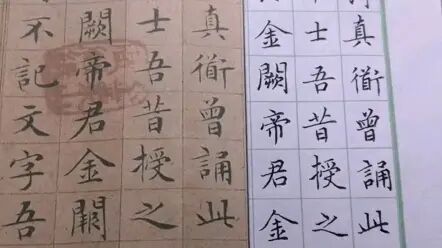 真衜曾誦此
士吾昔授之
金闕帝君金
真衜曾誦此
士吾昔授之
闕帝君金闕
不記文字吾